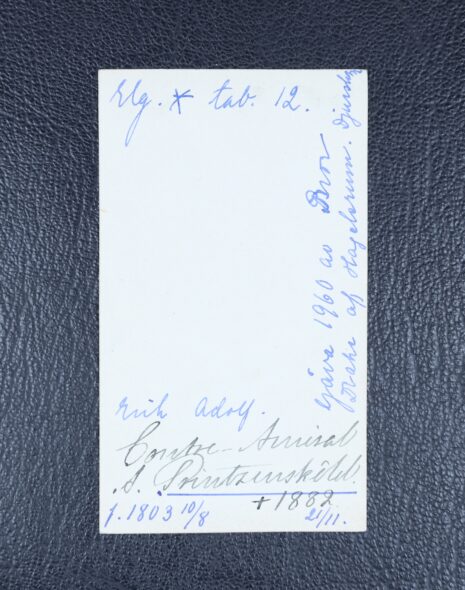 Elg. x tab. 12.
Gåva 1960 av Bror
Drake af Hagelsrum. Djursh
Erik Adolf.
Contre-Amiral
S. Printzensköld.
+ 1882
f. 1803 10/8 21/11.